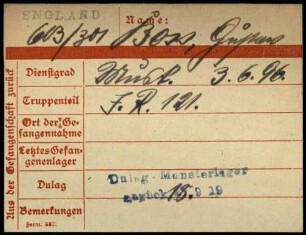 ENGLAND
Name:
603/301 Boss, Gustav
Dienstgrad Musk. 3.6.96.
Truppenteil I.R. 121.
Ort der Ge-
fangennahme
Letztes Gefan-
genenlager
Dulag Dulag Munsterlager
zurück 18.9 19
Bemerkungen
Form. 687.
Aus der Gefangenschaft zurück